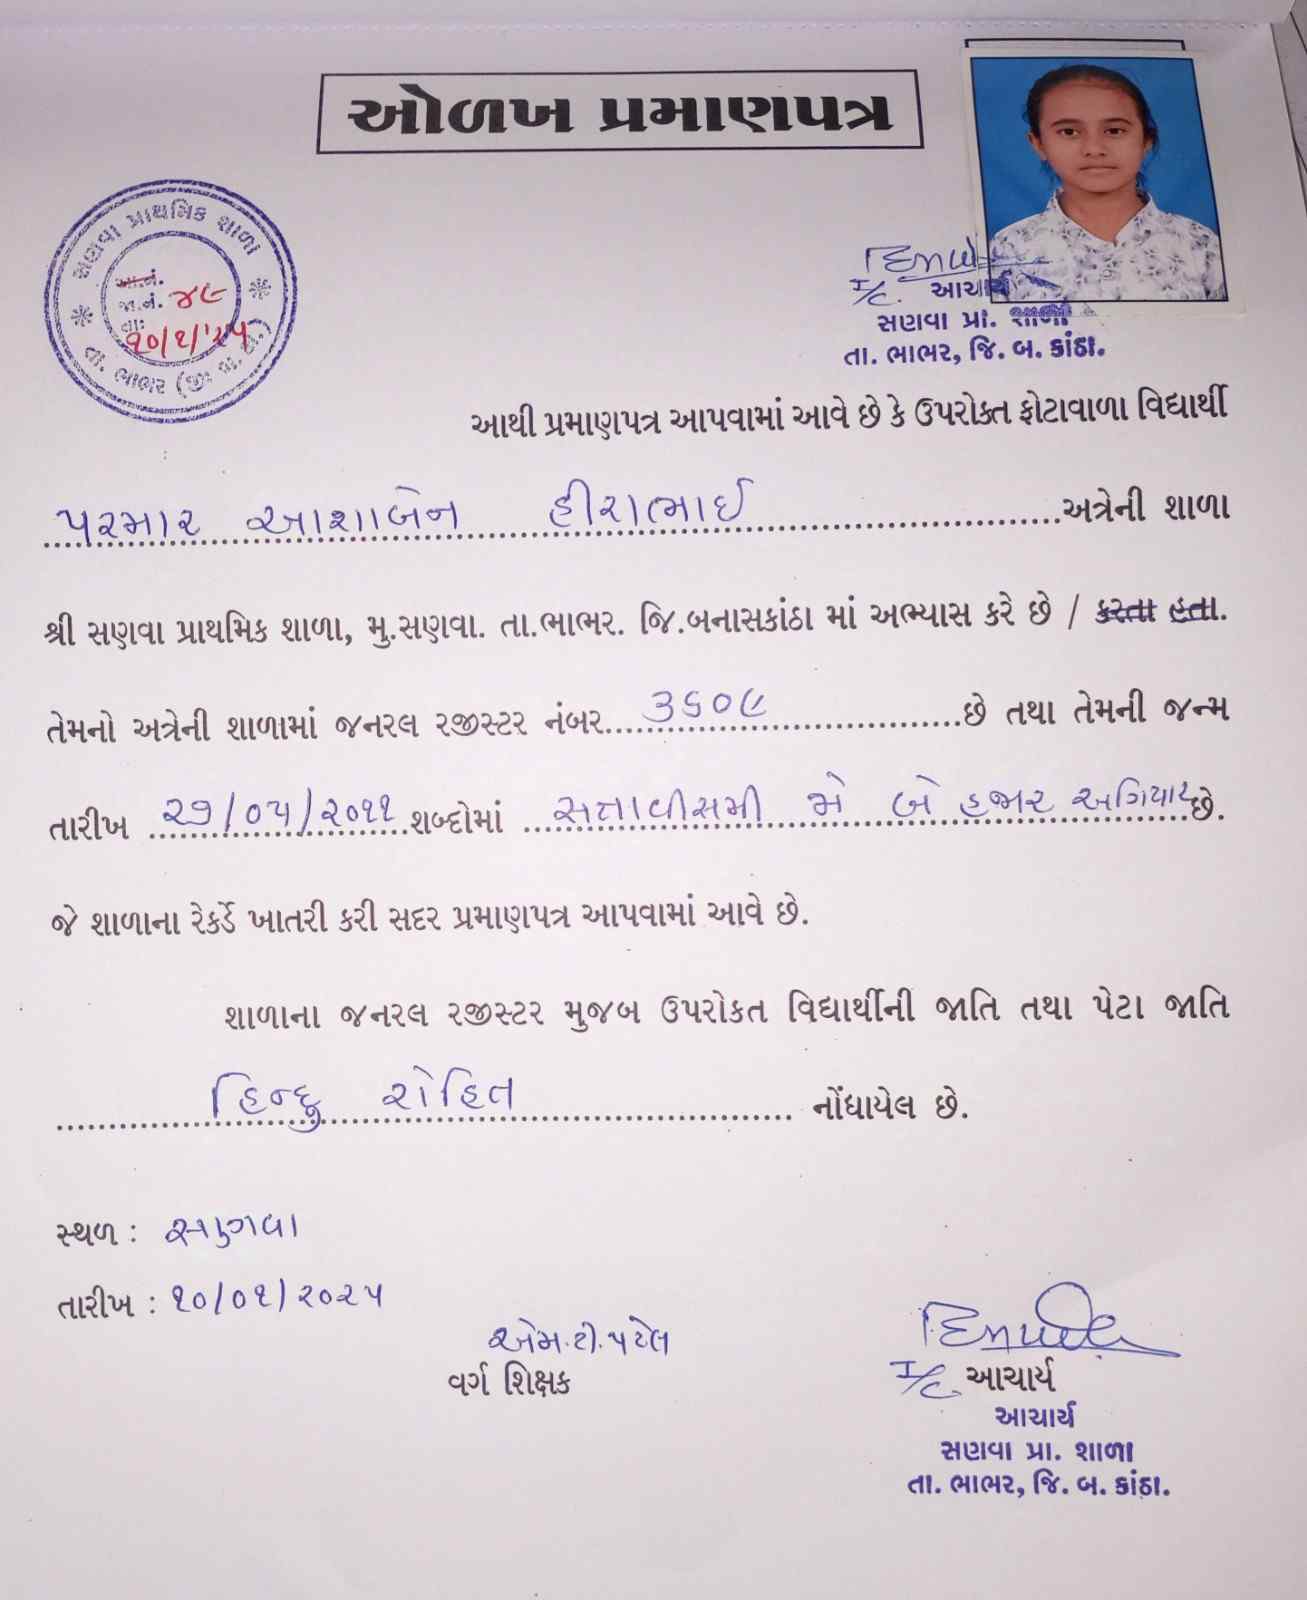 ઓળખ પ્રમાણપત્ર
સણવા પ્રાથમિક શાળા
આ.નં.
જા.નં. ૪૯
તા: ૧૦/૧/'૨૫
તા. ભાભર (જી. બ. કાં.)
I/C. આચાર્ય
સણવા પ્રા. શાળા
તા. ભાભર, જિ. બ. કાંઠા.
આથી પ્રમાણપત્ર આપવામાં આવે છે કે ઉપરોક્ત ફોટાવાળા વિદ્યાર્થી
પરમાર આશાબેન હીરાભાઈ અત્રેની શાળા
શ્રી સણવા પ્રાથમિક શાળા, મુ.સણવા. તા.ભાભર. જિ.બનાસકાંઠા માં અભ્યાસ કરે છે / કરતા હતા.
તેમનો અત્રેની શાળામાં જનરલ રજીસ્ટર નંબર...૩૬૦૯...છે તથા તેમની જન્મ
તારીખ ૨૭/૦૫/૨૦૧૧ શબ્દોમાં સત્તાવીસમી મે બે હજાર અગિયાર છે.
જે શાળાના રેકર્ડે ખાતરી કરી સદર પ્રમાણપત્ર આપવામાં આવે છે.
શાળાના જનરલ રજીસ્ટર મુજબ ઉપરોકત વિદ્યાર્થીની જાતિ તથા પેટા જાતિ
હિન્દુ રોહિત નોંધાયેલ છે.
સ્થળ : સણવા
તારીખ : ૧૦/૦૧/૨૦૨૫
એમ.ટી.પટેલ
વર્ગ શિક્ષક
I/C. આચાર્ય
આચાર્ય
સણવા પ્રા. શાળા
તા. ભાભર, જિ. બ. કાંઠા.